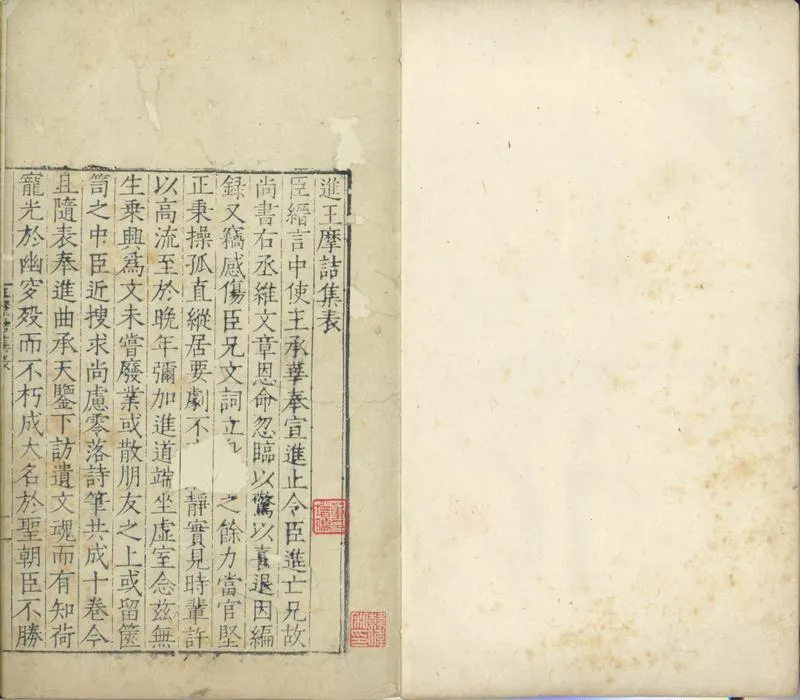 進王摩詰集表
臣縉言中使王承華奉宣進止令臣進亡兄故
尚書右丞維文章恩命忽臨以驚以喜退因編
録又竊感傷臣兄文詞立之餘力當官堅
正秉操孤直縱居要劇不靜實見時輩許
以高流至於晚年彌加進道端坐虛室念茲無
生乗興爲文未嘗廢業或散朋友之上或留篋
笥之中臣近搜求尚慮零落詩筆共成十卷今
且隨表奉進曲承天鑒下訪遺文魂而有知荷
寵光於幽穸歿而不朽成大名於聖朝臣不勝